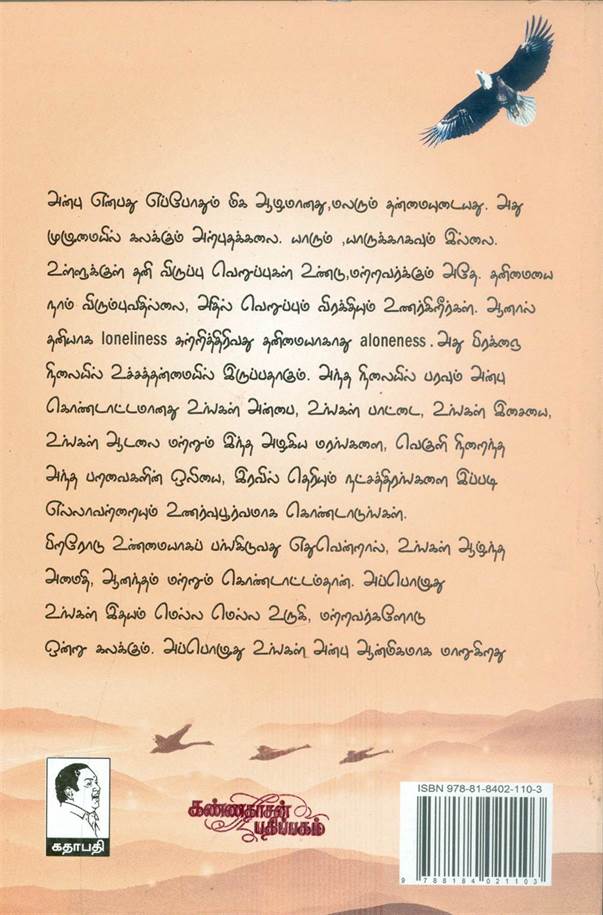 அன்பு என்பது எப்போதும் மிக ஆழமானது,மலரும் தன்மையுடையது. அது
முழுமையில் கலக்கும் அற்புதக்கலை. யாரும் ,யாருக்காகவும் இல்லை.
உள்ளுக்குள் தனி விருப்பு வெறுப்புகள் உண்டு,மற்றவர்க்கும் அதே. தனிமையை
நாம் விரும்புவதில்லை, அதில் வெறுப்பும் விரக்தியும் உணர்கிறீர்கள். ஆனால்
தனியாக loneliness சுற்றித்திரிவது தனிமையாகாது aloneness. அது பிரக்ஞை
நிலையில் உச்சத்தன்மையில் இருப்பதாகும். அந்த நிலையில் பரவும் அன்பு
கொண்டாட்டமானது உங்கள் அன்பை, உங்கள் பாட்டை, உங்கள் இசையை,
உங்கள் ஆடலை மற்றும் இந்த அழகிய மரங்களை, வெகுளி நிறைந்த
அந்த பறவைகளின் ஒலியை, இரவில் தெரியும் நட்சத்திரங்களை இப்படி
எல்லாவற்றையும் உணர்வுபூர்வமாக கொண்டாடுங்கள்.
பிறரோடு உண்மையாகப் பங்கிடுவது எதுவென்றால், உங்கள் ஆழ்ந்த
அமைதி, ஆனந்தம் மற்றும் கொண்டாட்டம்தான். அப்பொழுது
உங்கள் இதயம் மெல்ல மெல்ல உருகி, மற்றவர்களோடு
ஒன்று கலக்கும். அப்பொழுது உங்கள் அன்பு ஆன்மிகமாக மாறுகிறது
கதாபதி
கண்ணதாசன்
பதிப்பகம்
ISBN 978-81-8402-110-3
9 788184 021103